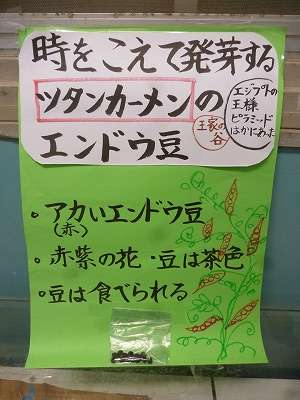 時をこえて発芽する
ツタンカーメンの
エンドウ豆
王家の
谷
エジプトの
王様
ピラミッド
はかにあった
・アカいエンドウ豆
(赤)
・赤紫の花・豆は茶色
・豆は食べられる